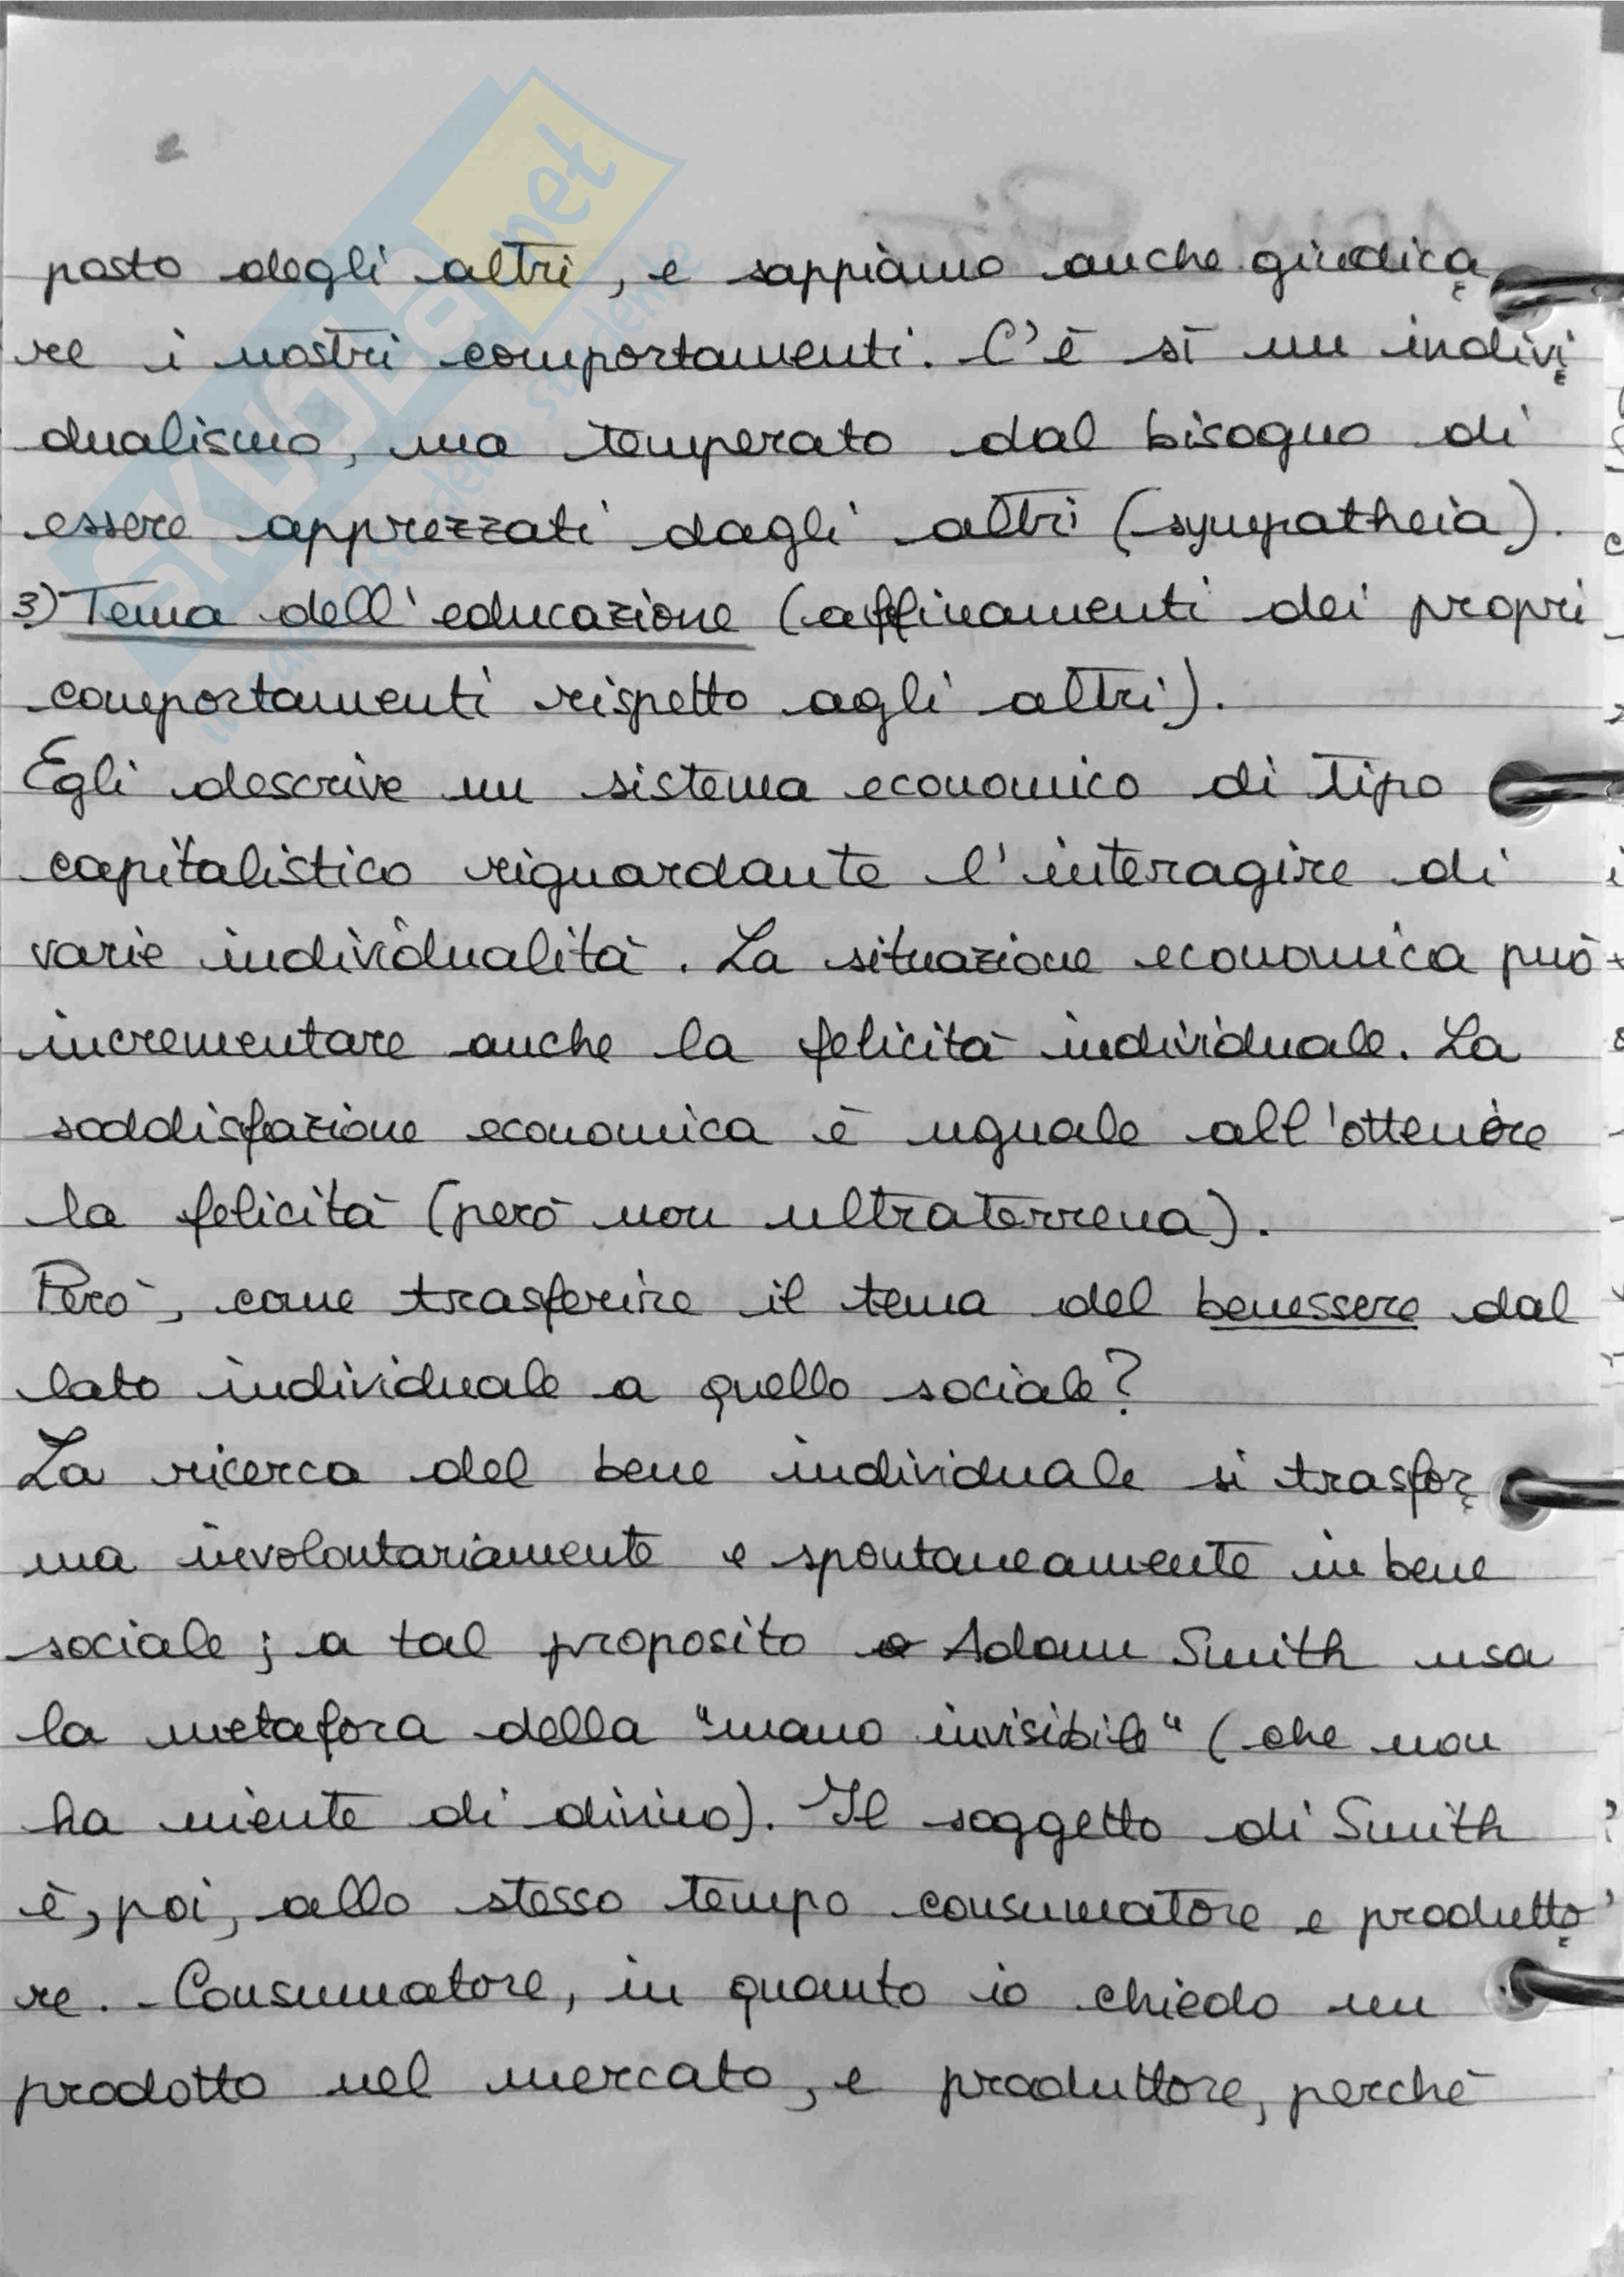 posto degli altri, e sappiamo anche giudica
re i nostri comportamenti. C'è sì un indivi
dualismo, ma temperato dal bisogno di
essere apprezzati dagli altri (sympatheia).
3) Tema dell'educazione (affinamenti dei propri
comportamenti rispetto agli altri).
Egli descrive un sistema economico di tipo
capitalistico riguardante l'interagire di
varie individualità. La situazione economica può
incrementare anche la felicità individuale. La
soddisfazione economica è uguale all'ottenere
la felicità (però non ultraterrena).
Però, come trasferire il tema del benessere dal
lato individuale a quello sociale?
La ricerca del bene individuale si trasfor
ma involontariamente e spontaneamente in bene
sociale; a tal proposito Adam Smith usa
la metafora della "mano invisibile" (che non
ha niente di divino). Il soggetto di Smith
è, poi, allo stesso tempo consumatore e produtto
re. - Consumatore, in quanto io chiedo un
prodotto nel mercato, e produttore, perchè
SKUOLA.net